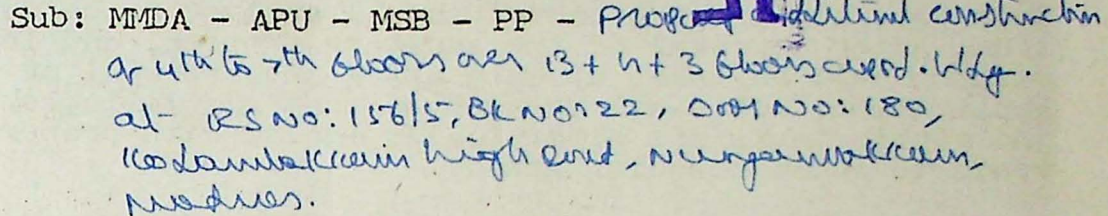 Sub: MMDA - APU - MSB - PP - Proposed additional construction
of 4th to 7th floors over B + G + 3 floors bldg.
at RS NO: 156/5, BK NO: 22, Door NO: 180,
Kodambakkam high road, Nungambakkam,
Madras.